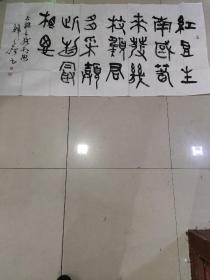 紅豆生
南國春
來發幾
枝願君
多采擷
此物最
相思